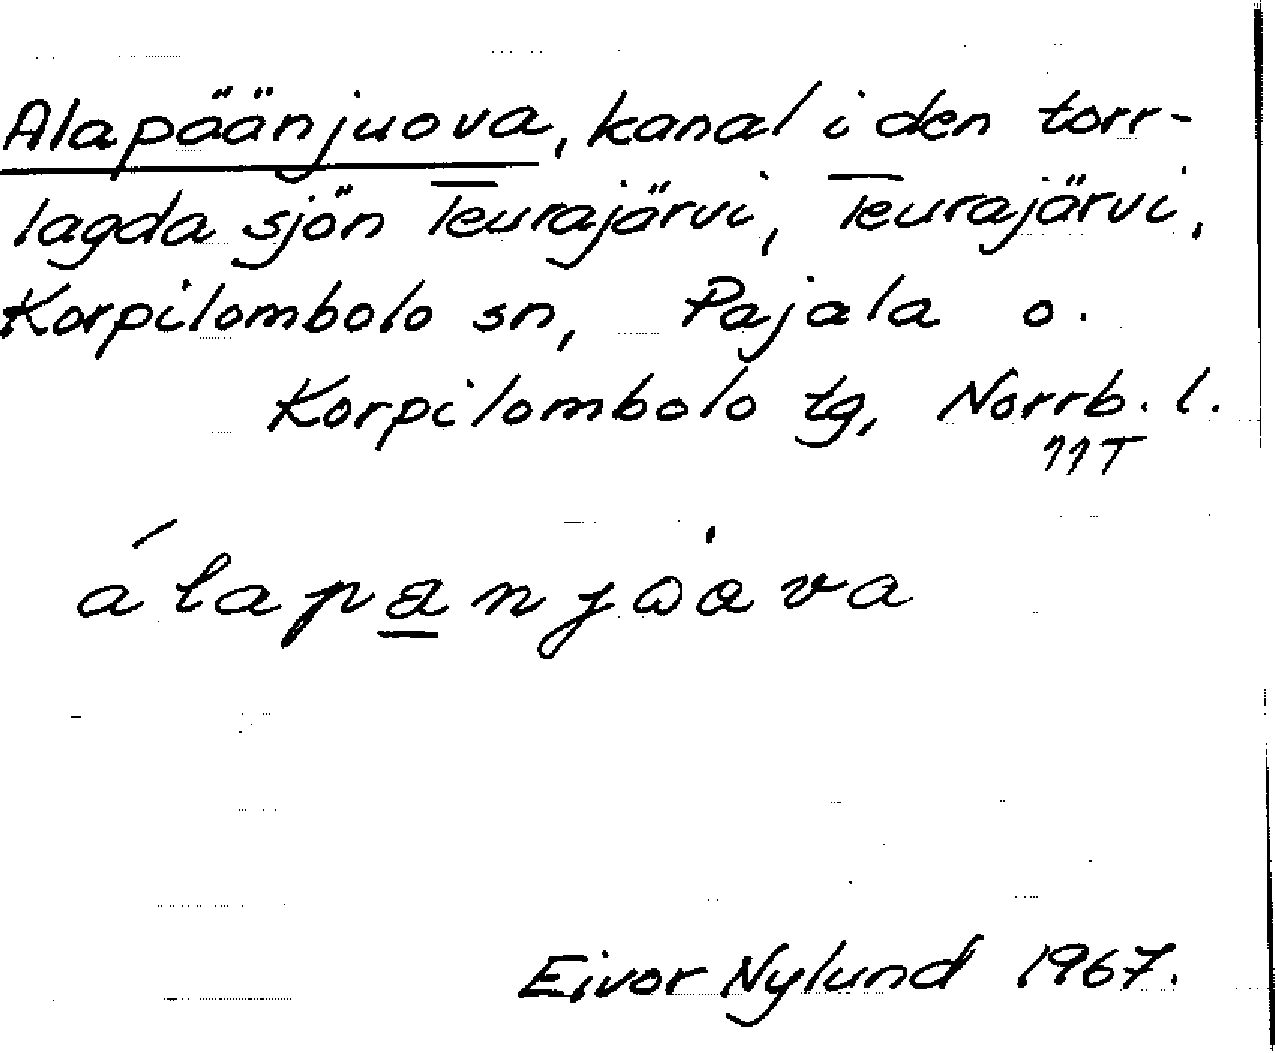 Alapäänjuova, kanal i den torr-
lagda sjön Teurajärvi, Teurajärvi,
Korpilombolo sn, Pajala o.
Korpilombolo tg, Norrb. l.
11T
Eivor Nylund 1967.